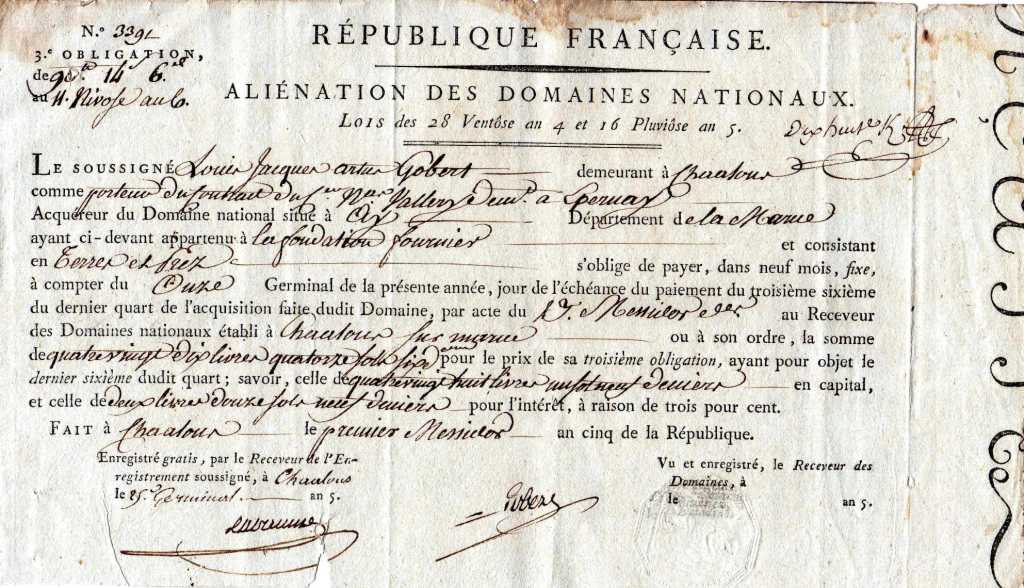 N.º 3391
3.e OBLIGATION,
de 90ᵗᵗ 14ˢ 6ᵈ
au 11. Nivose an 6.
RÉPUBLIQUE FRANÇAISE.
ALIÉNATION DES DOMAINES NATIONAUX.
LOIS des 28 Ventôse an 4 et 16 Pluviôse an 5.
LE SOUSSIGNÉ Louis Jacques artus Gobert demeurant à Chaalons
comme porteur du Contrat du S. Nas Vallery à Epernay
Acquéreur du Domaine national situé à Aÿ Département de la Marne
ayant ci-devant appartenu à la fondation fournier et consistant
en Terres et Préz s'oblige de payer, dans neuf mois, fixe,
à compter du Onze Germinal de la présente année, jour de l'échéance du paiement du troisième sixième
du dernier quart de l'acquisition faite dudit Domaine, par acte du Messidor der au Receveur
des Domaines nationaux établi à Chaalons sur marne ou à son ordre, la somme
de quatre vingt dix livres quatorze sols six den pour le prix de sa troisième obligation, ayant pour objet le
dernier sixième dudit quart ; savoir, celle de quatre vingt huit livres un sol neuf deniers en capital,
et celle de deux livres douze sols neuf deniers pour l'intérêt, à raison de trois pour cent.
FAIT à Chaalons le premier Messidor an cinq de la République.
Enregistré gratis, par le Receveur de l'En-
registrement soussigné, à Chaalons
le 25 Germinal an 5.
Gobert
Vu et enregistré, le Receveur des
Domaines, à
le an 5.